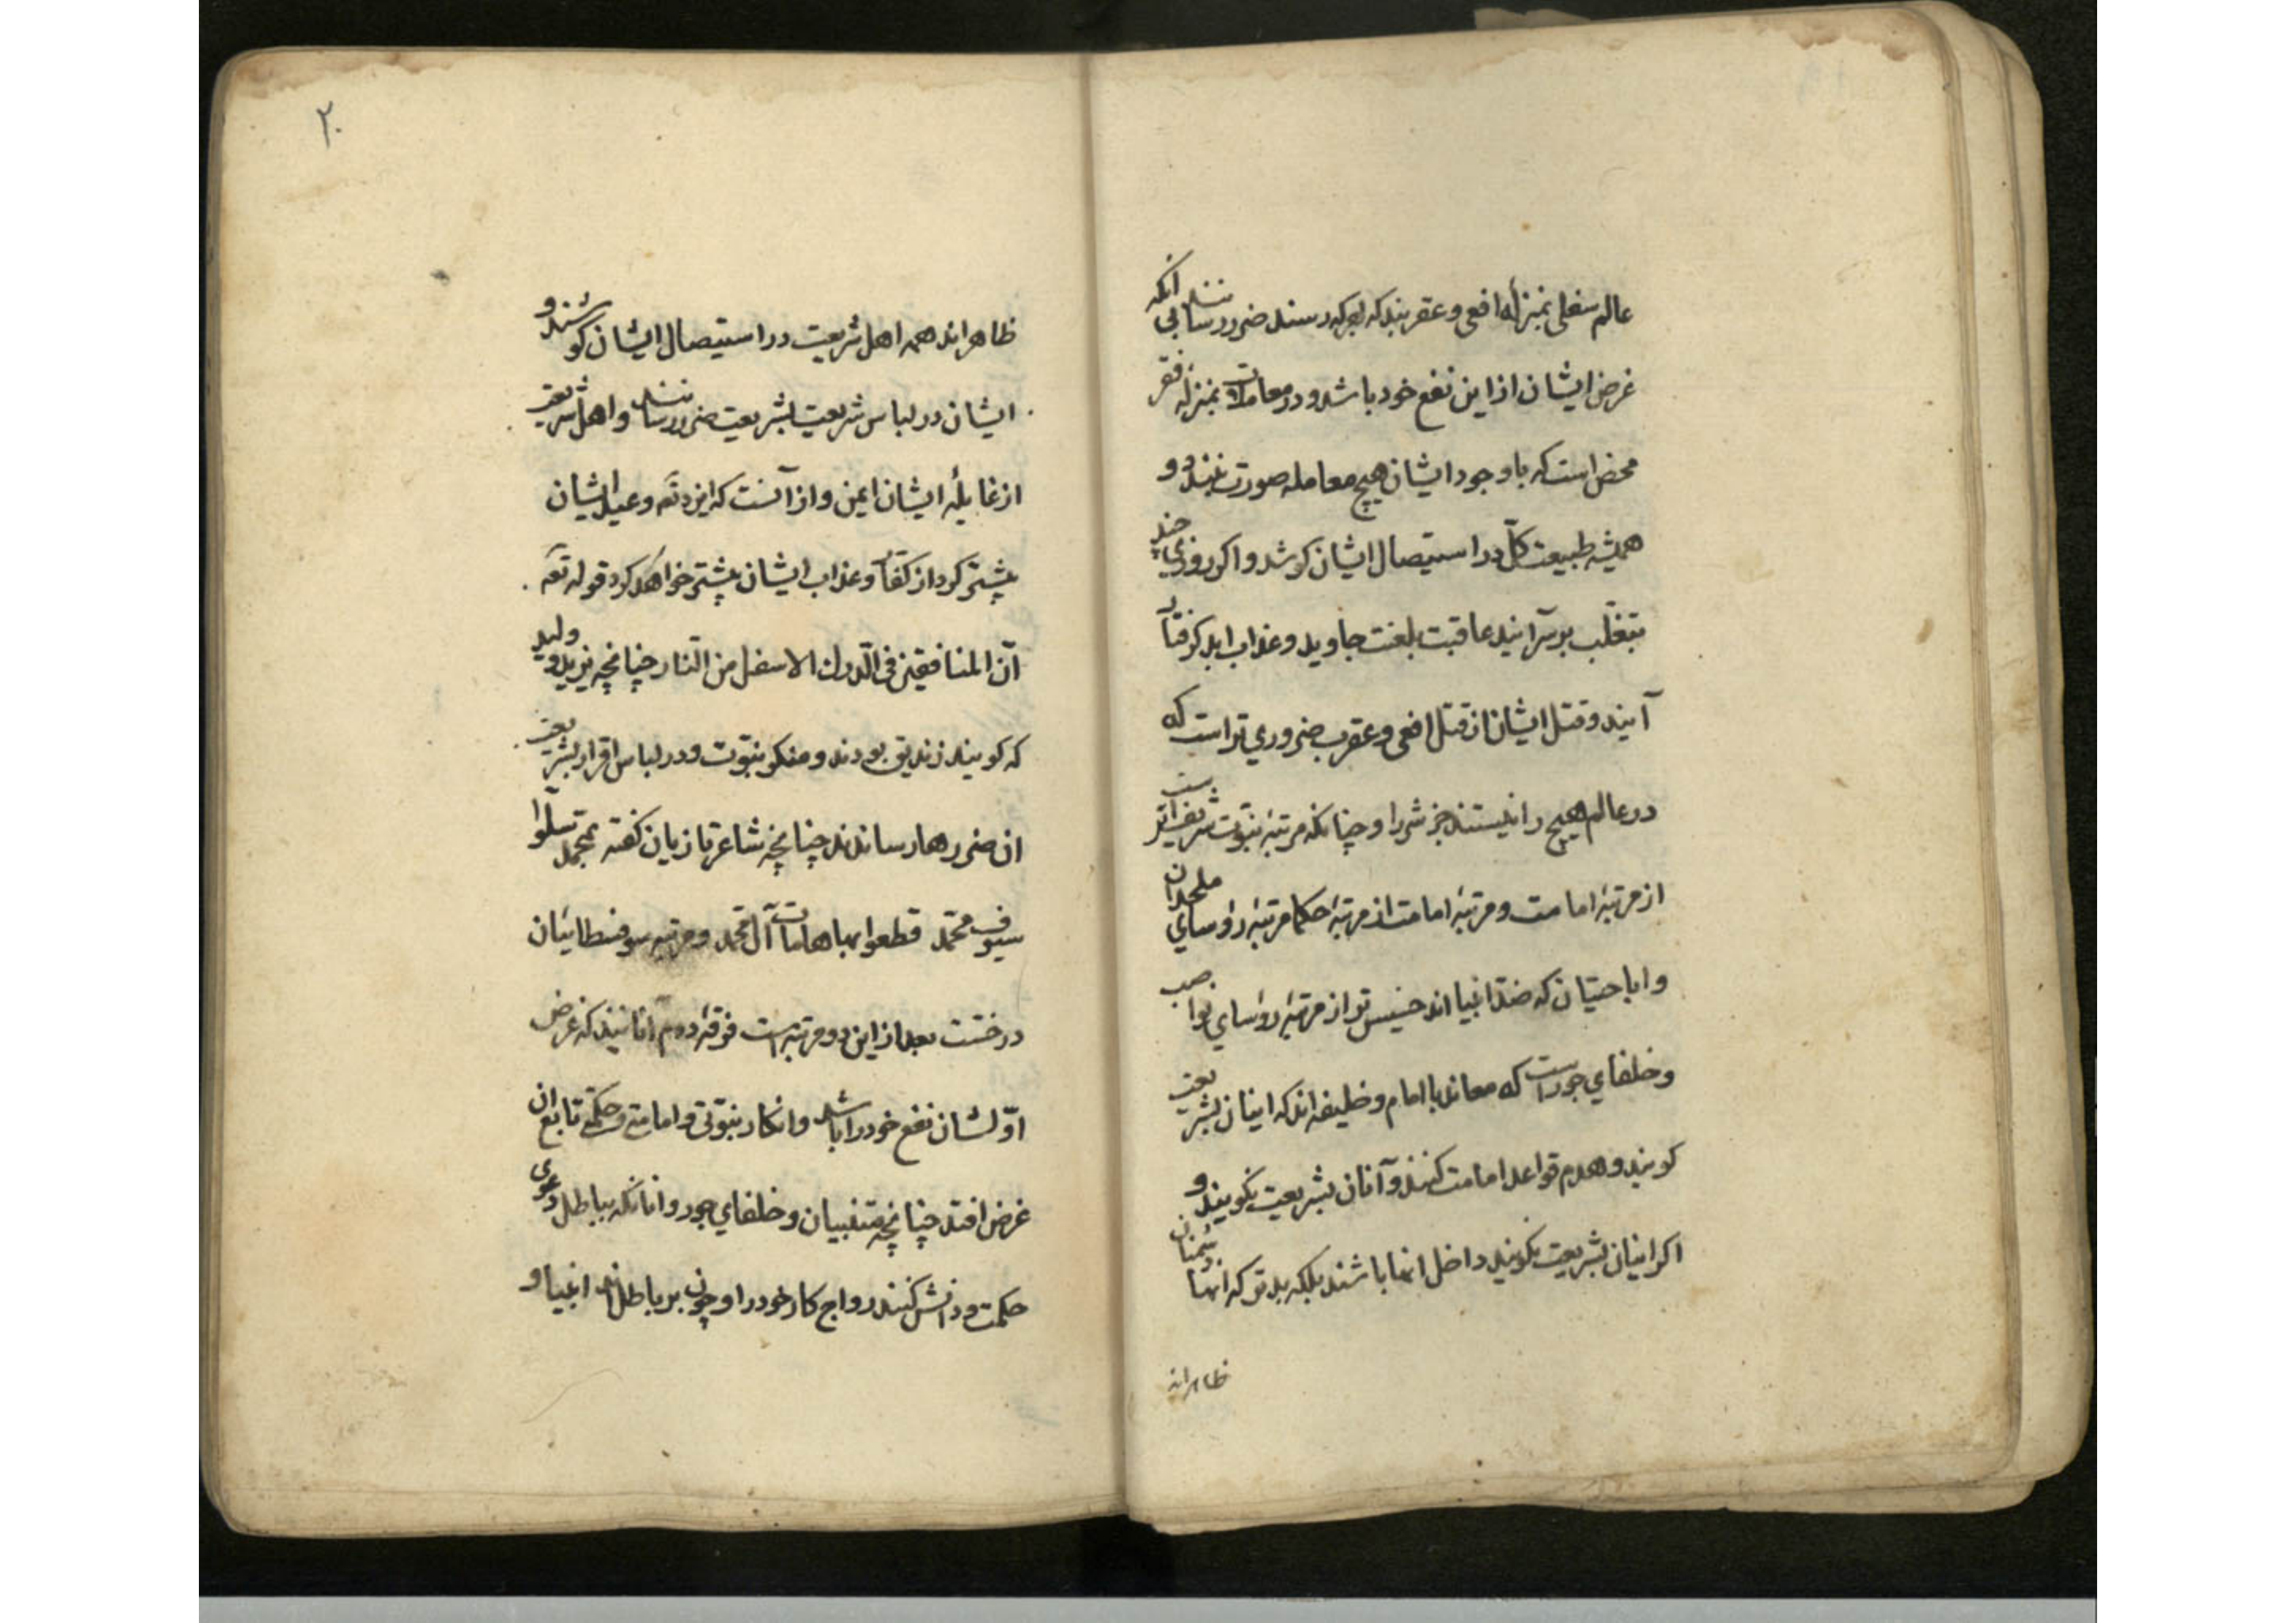 عالم سفلی بمنزلهٔ افعی و عقربند که بهر که رسند ضرر رسانند بی آنکه
غرض ایشان از این نفع خود باشد و در معاملات بمنزلهٔ فقر
محض است که با وجود ایشان هیچ معامله صورت نبندد و
همیشه طبیعت کلّ در استیصال ایشان کوشد و اکر روزی چند
بتغلّب بر سرآیند عاقبت بلعنت جاوید و عذاب ابد کرفتار
آیند و قتل ایشان از قتل افعی و عقرب ضروری تر است که
در عالم هیچ را نیستند جز شر را و چنانکه مرتبهٔ نبوّت شریفتر است
از مرتبهٔ امامت و مرتبهٔ امامت از مرتبهٔ حکما مرتبهٔ رؤسای ملحدان
و اباحتیان که ضدّ انبیا اند خسیس تر از مرتبهٔ رؤسای نواصب
و خلفای جور است که معاند با امام و خلیفه اند که اینان بشریعت
کویند و هدم قواعد امامت کنند و آنان بشریعت نکویند و
اکر اینان بشریعت نکویند داخل انها باشند بلکه بدتر که انها دشمنان
ظاهراند
۲۰
ظاهراند همه اهل شریعت در استیصال ایشان کوشند و
ایشان در لباس شریعت بشریعت ضرر رسانند و اهل شریعت
از غایلهٔ ایشان ایمن و از آنست که ایزد تعه وعید ایشان
بیشتر کرد از کفّار و عذاب ایشان بیشتر خواهد کرد قوله تعه
انّ المنافقین فی الدرک الاسفل من النّار چنانچه یزید و ولید
که کویند زندیق بودند و منکر نبوّت و در لباس اقرار بشریعت
ان ضررها رساندند چنانچه شاعر تازیان کفته بمحمد سلّوا
سیوف محمّد قطعوا بها هامات آل محمد و مرتبه سوفسطائیان
درخست بعد از این دو مرتبه است فرقهٔ دوم آنانیند که غرض
اوّلشان نفع خود را باشد و انکار نبوّتی و امامتی و حکمتی تابع ان
غرض افتد چنانچه متنبیان و خلفای جور و انانکه بباطل دعوی
حکمت و دانش کنند رواج کار خود را و چون بر باطل اند انبیا و